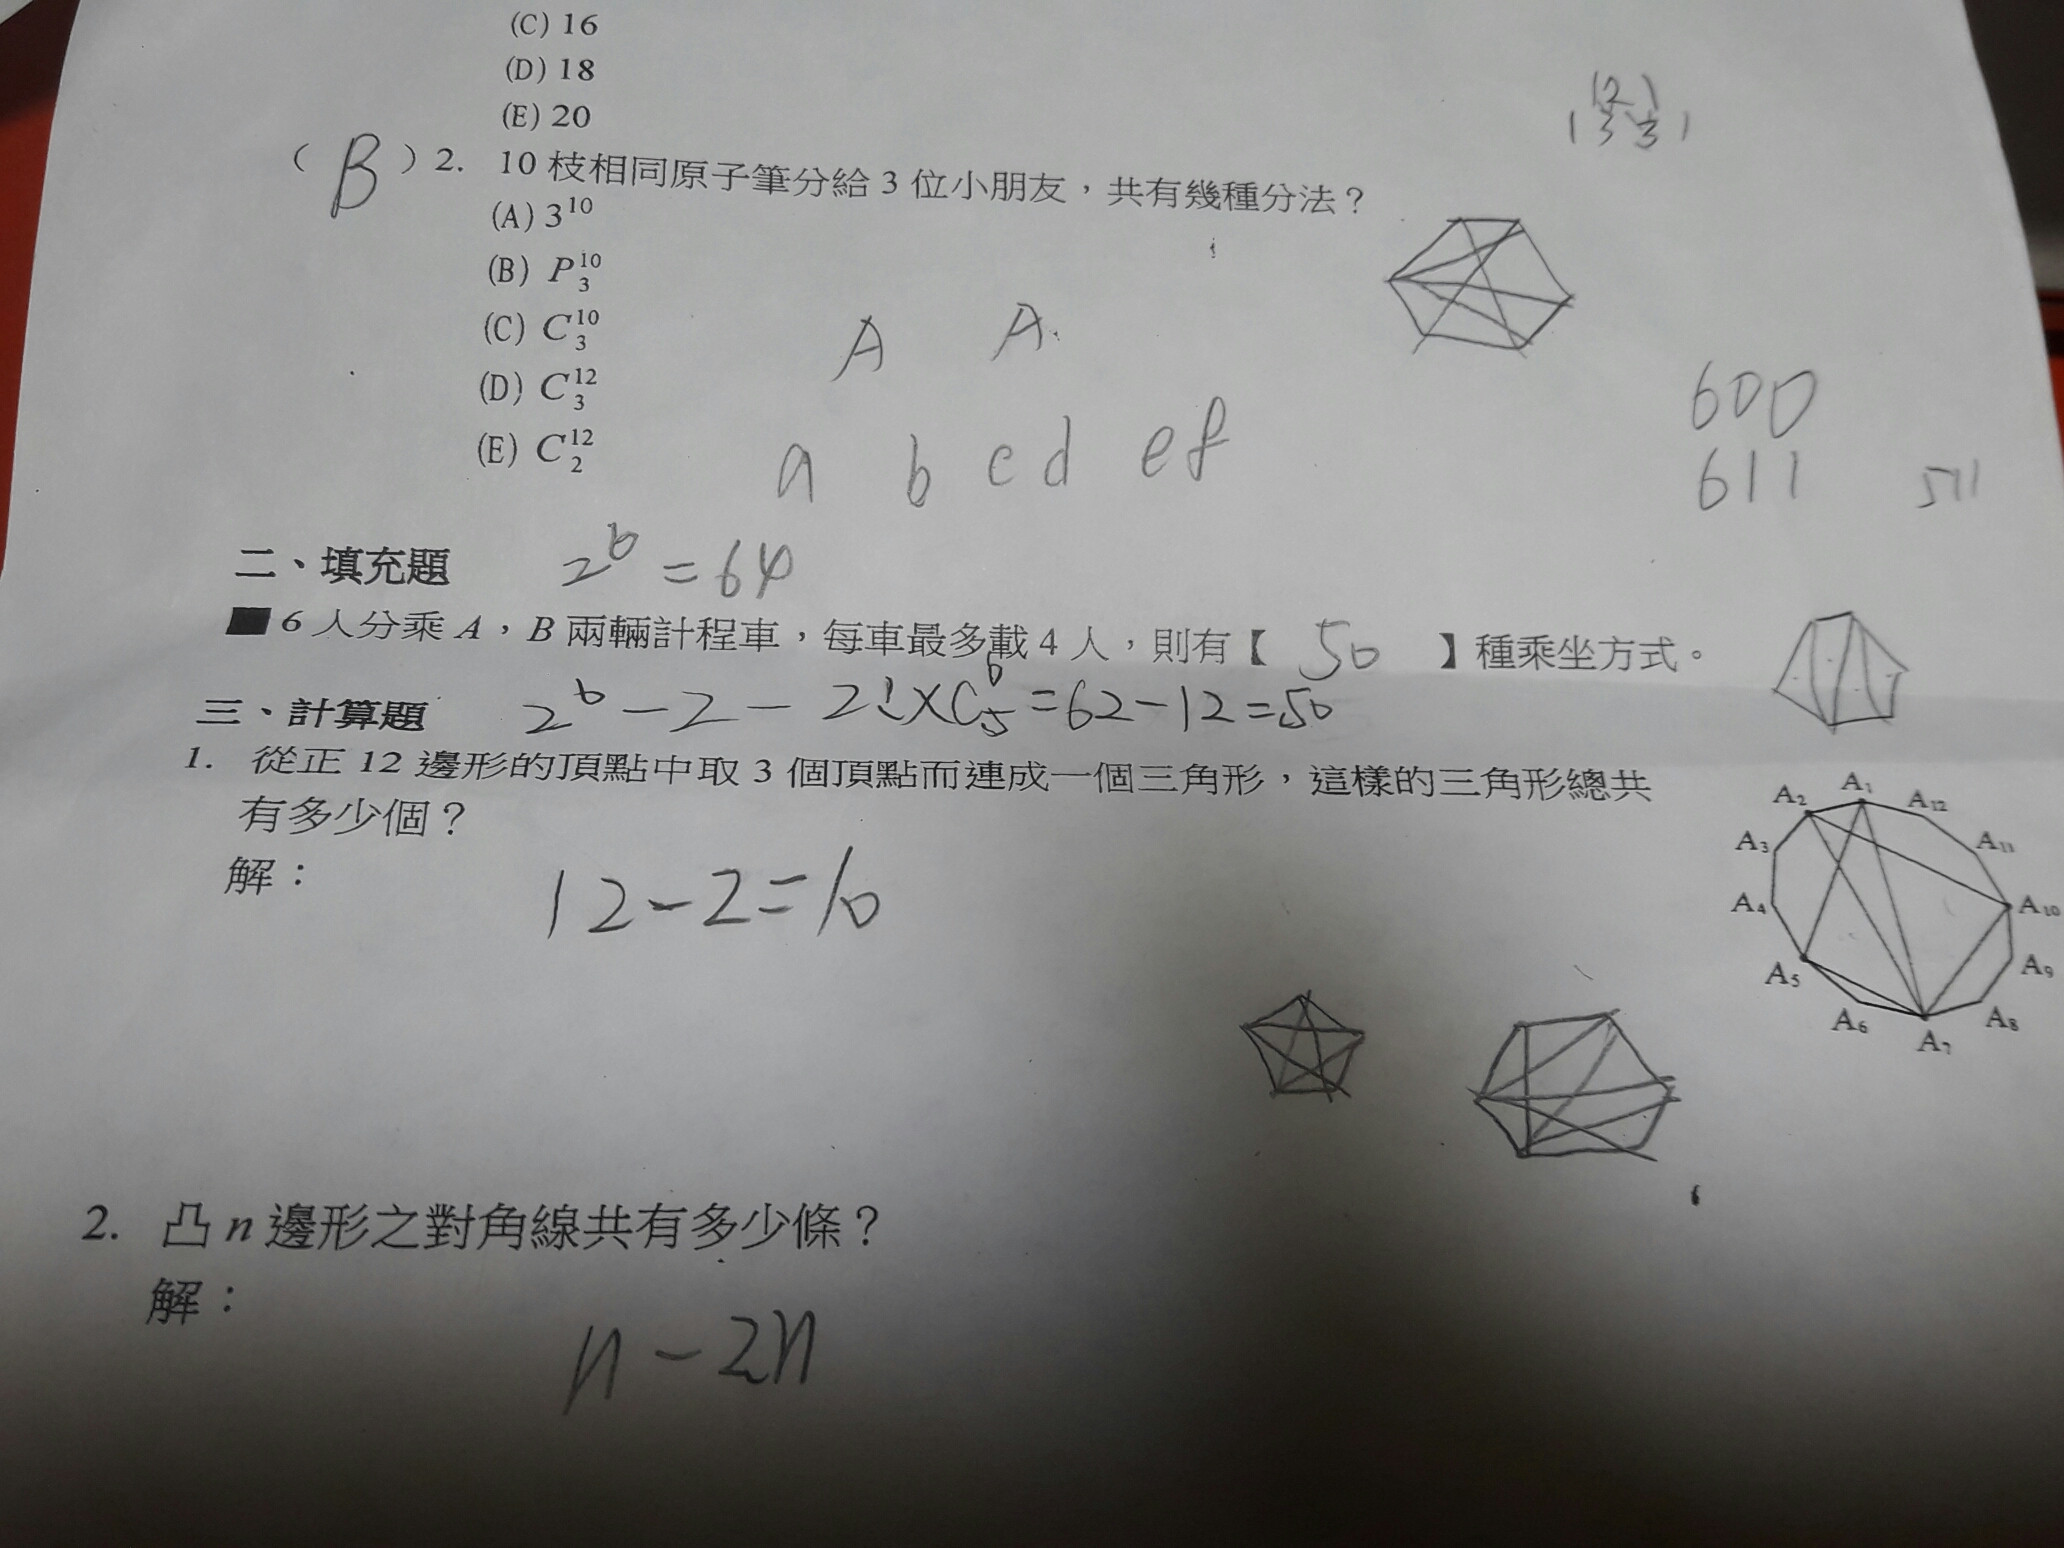 (C) 16
(D) 18
(E) 20
( B ) 2. 10 枝相同原子筆分給 3 位小朋友，共有幾種分法？
(A) 3¹⁰
(B) P₃¹⁰
(C) C₃¹⁰
(D) C₃¹²
(E) C₂¹²
A A
a b c d e f
600
611 511
二、填充題 2⁶ = 64
■ 6 人分乘 A，B 兩輛計程車，每車最多載 4 人，則有【 50 】種乘坐方式。
2⁶ - 2 - 2! × C₅⁶ = 62 - 12 = 50
三、計算題
1. 從正 12 邊形的頂點中取 3 個頂點而連成一個三角形，這樣的三角形總共
有多少個？
解：
12 - 2 = 10
A₁
A₂
A₁₂
A₃
A₁₁
A₄
A₁₀
A₅
A₉
A₆
A₈
A₇
2. 凸 n 邊形之對角線共有多少條？
解：
n - 2n